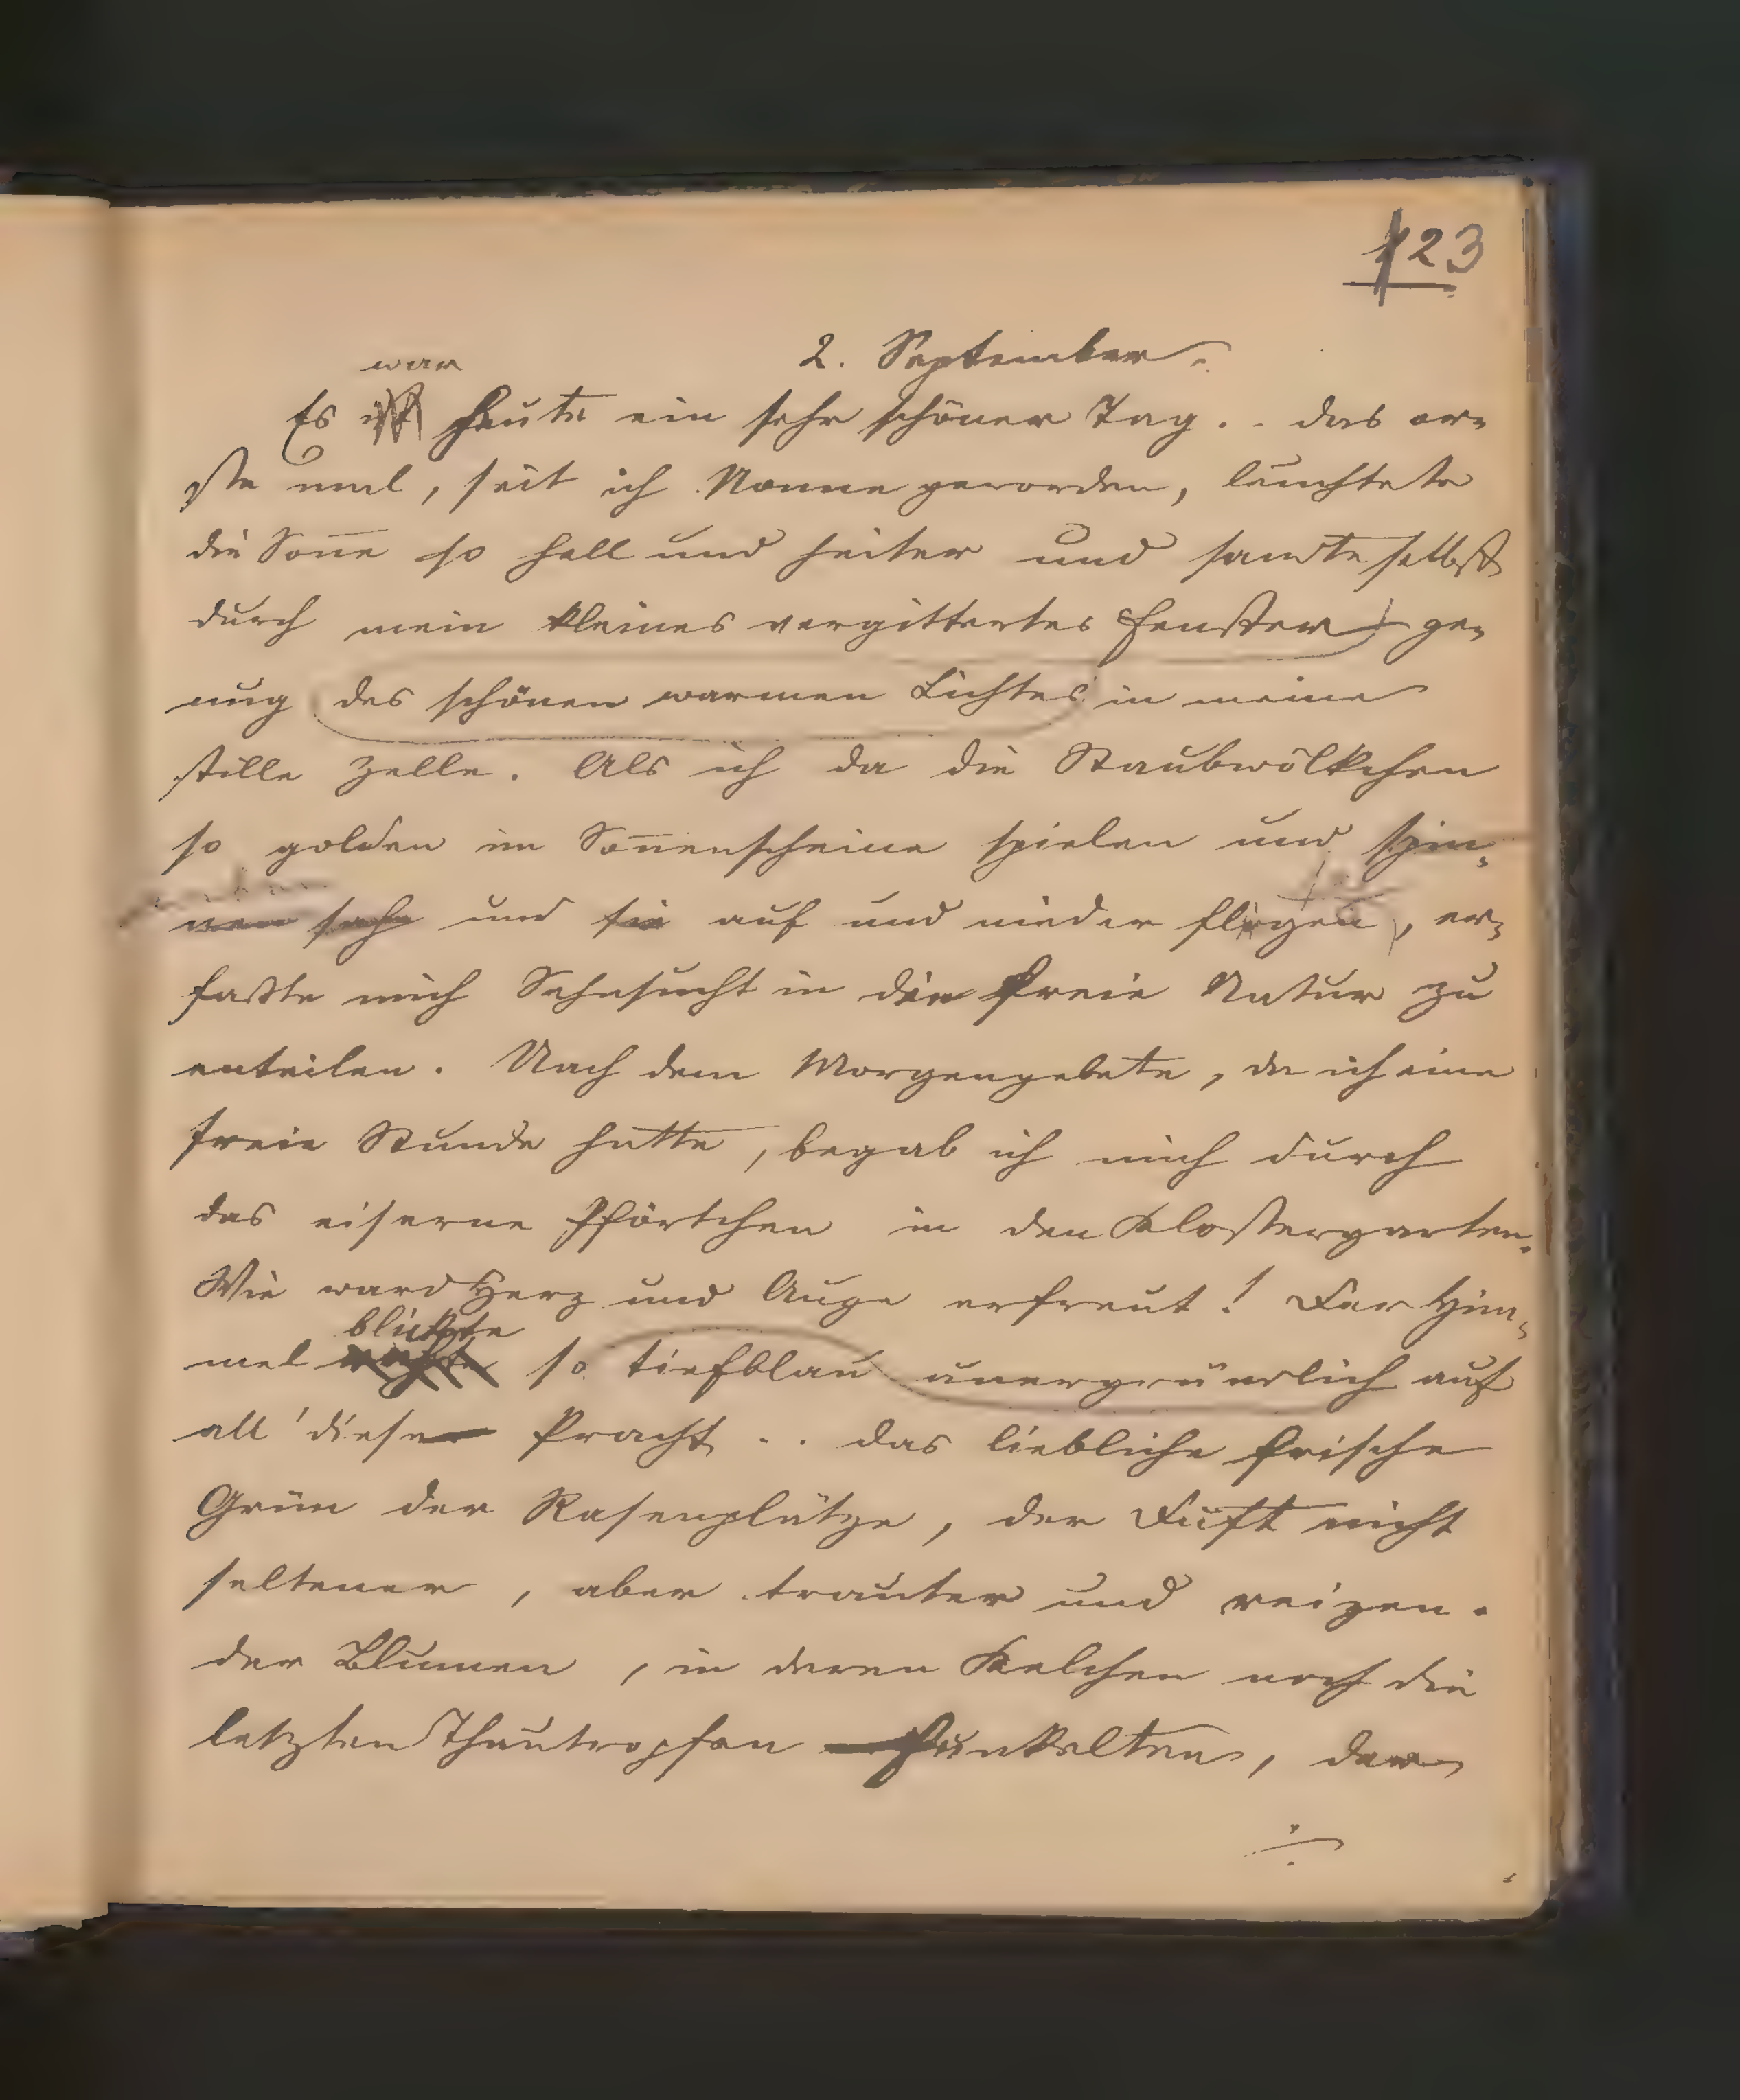 123
2. September.
war
Es ist heute ein sehr schöner Tag . . das er-
ste mal, seit ich Nonne geworden, leuchtete
die Sonne so hell und heiter und sandte selbst
durch mein kleines vergittertes Fenster ge-
nug des schönen warmen Lichtes in meine
stille Zelle. Als ich da die Staubwölkchen
so golden im Sonnenscheine spielen und spin-
nen sah und sie auf und nieder fliegen, er-
faßte mich Sehnsucht in die freie Natur zu
enteilen. Nach dem Morgengebete, da ich eine
freie Stunde hatte, begab ich mich durch
das eiserne Pförtchen in den Klostergarten.
Wie ward Herz und Auge erfreut! Der Him-
blickte
mel so tiefblau unergründlich auf
all' diese Pracht . . das liebliche frische
Grün der Rasenplätze, der Duft nicht
seltener, aber trauter und reizen-
der Blumen, in deren Kelchen noch die
letzten Thautropfen funkelten, der